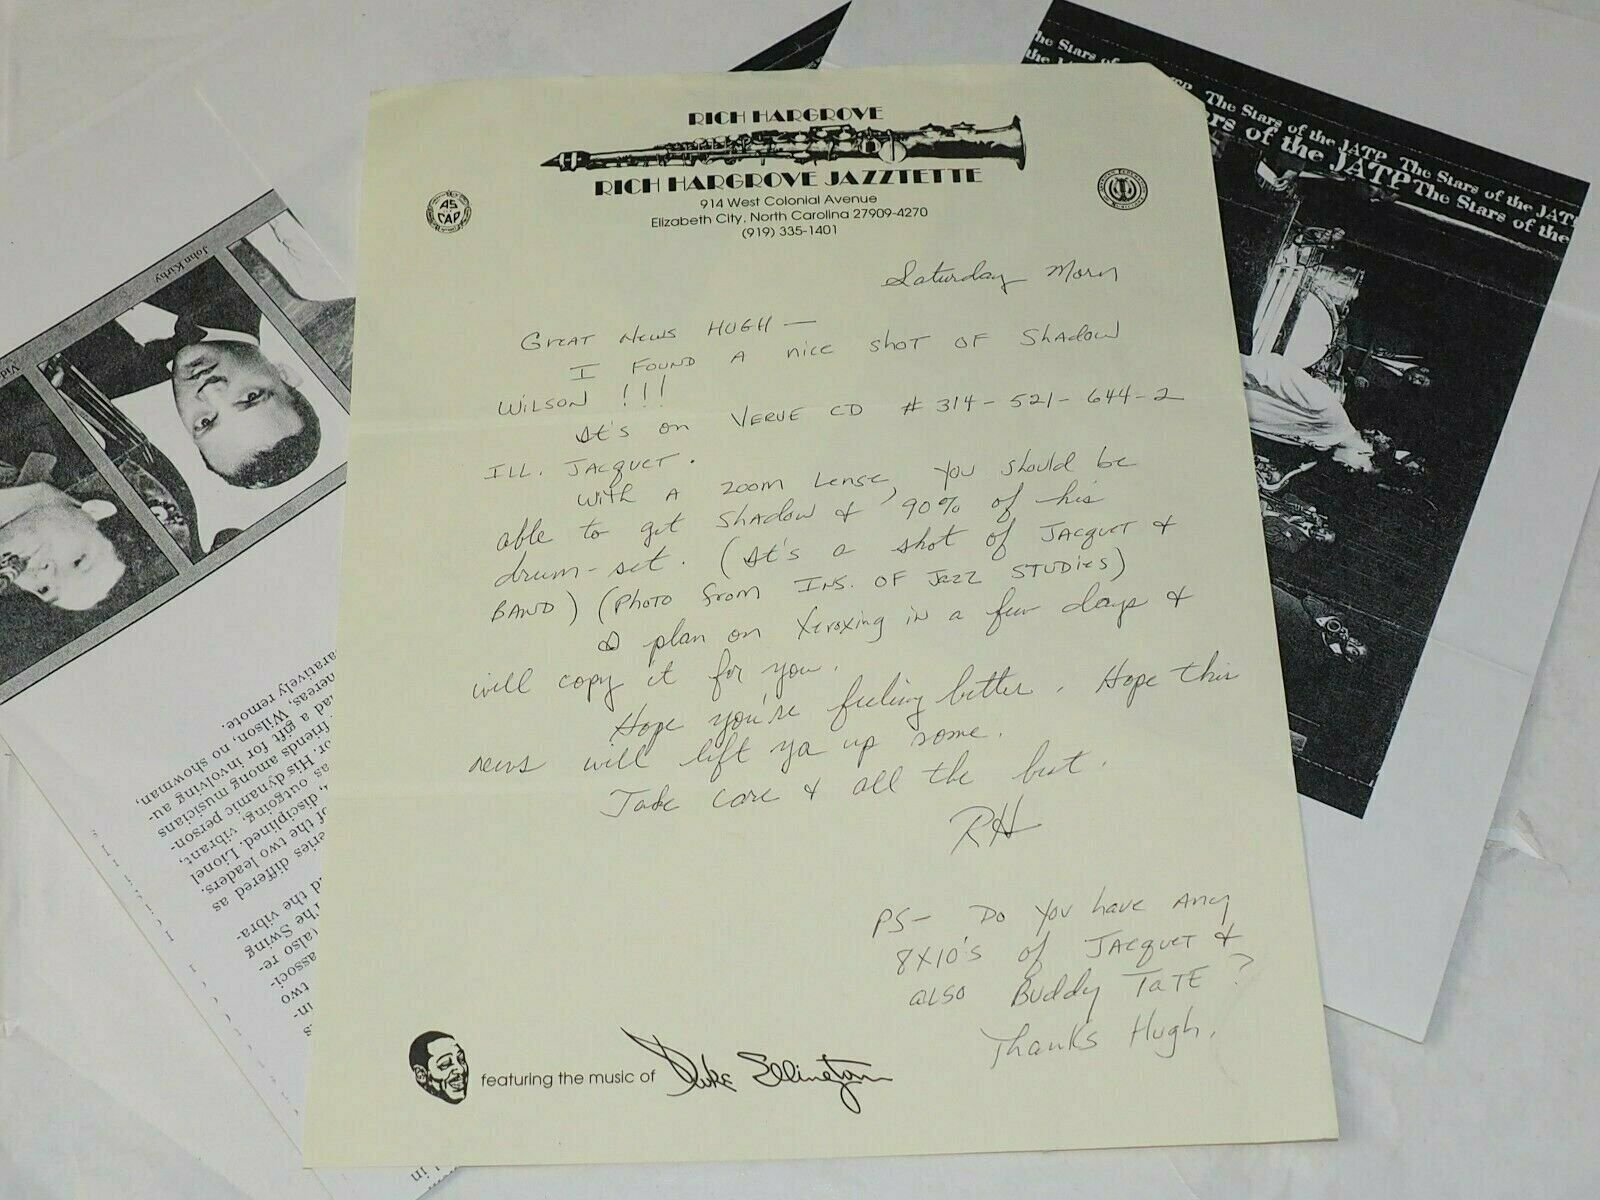 RICH HARGROVE
RICH HARGROVE JAZZTETTE
914 West Colonial Avenue
Elizabeth City, North Carolina 27909-4270
(919) 335-1401
AS
CAP
Saturday Morn
Great News HUGH —
I FOUND A nice SHOT OF SHADOW
WILSON !!!
It's on VERVE CD # 314-521-644-2
ILL. JACQUET.
With A ZOOM Lense, you should be
able to get SHADOW & 90% of his
drum-set. (It's a shot of JACQUET &
BAND) (PHOTO from INS. OF JAZZ STUDIES)
I plan on Xeroxing in a few days &
will copy it for you.
Hope you're feeling better. Hope this
news will lift ya up some.
Take care & all the best.
RH
PS— Do you have any
8X10's of JACQUET &
also Buddy TATE?
Thanks Hugh.
featuring the music of Duke Ellington
The Stars of the JATP The Stars of the JATP
The Stars of the
John Kirby
and the vibra-
The Swing
(also re-
associ-
two
in-
eries differed as
of the two leaders,
disciplined. Lionel
as outgoing, vibrant,
or. His dynamic person-
friends among musicians
had a gift for involving au-
hereas, Wilson, no showman,
aratively remote.